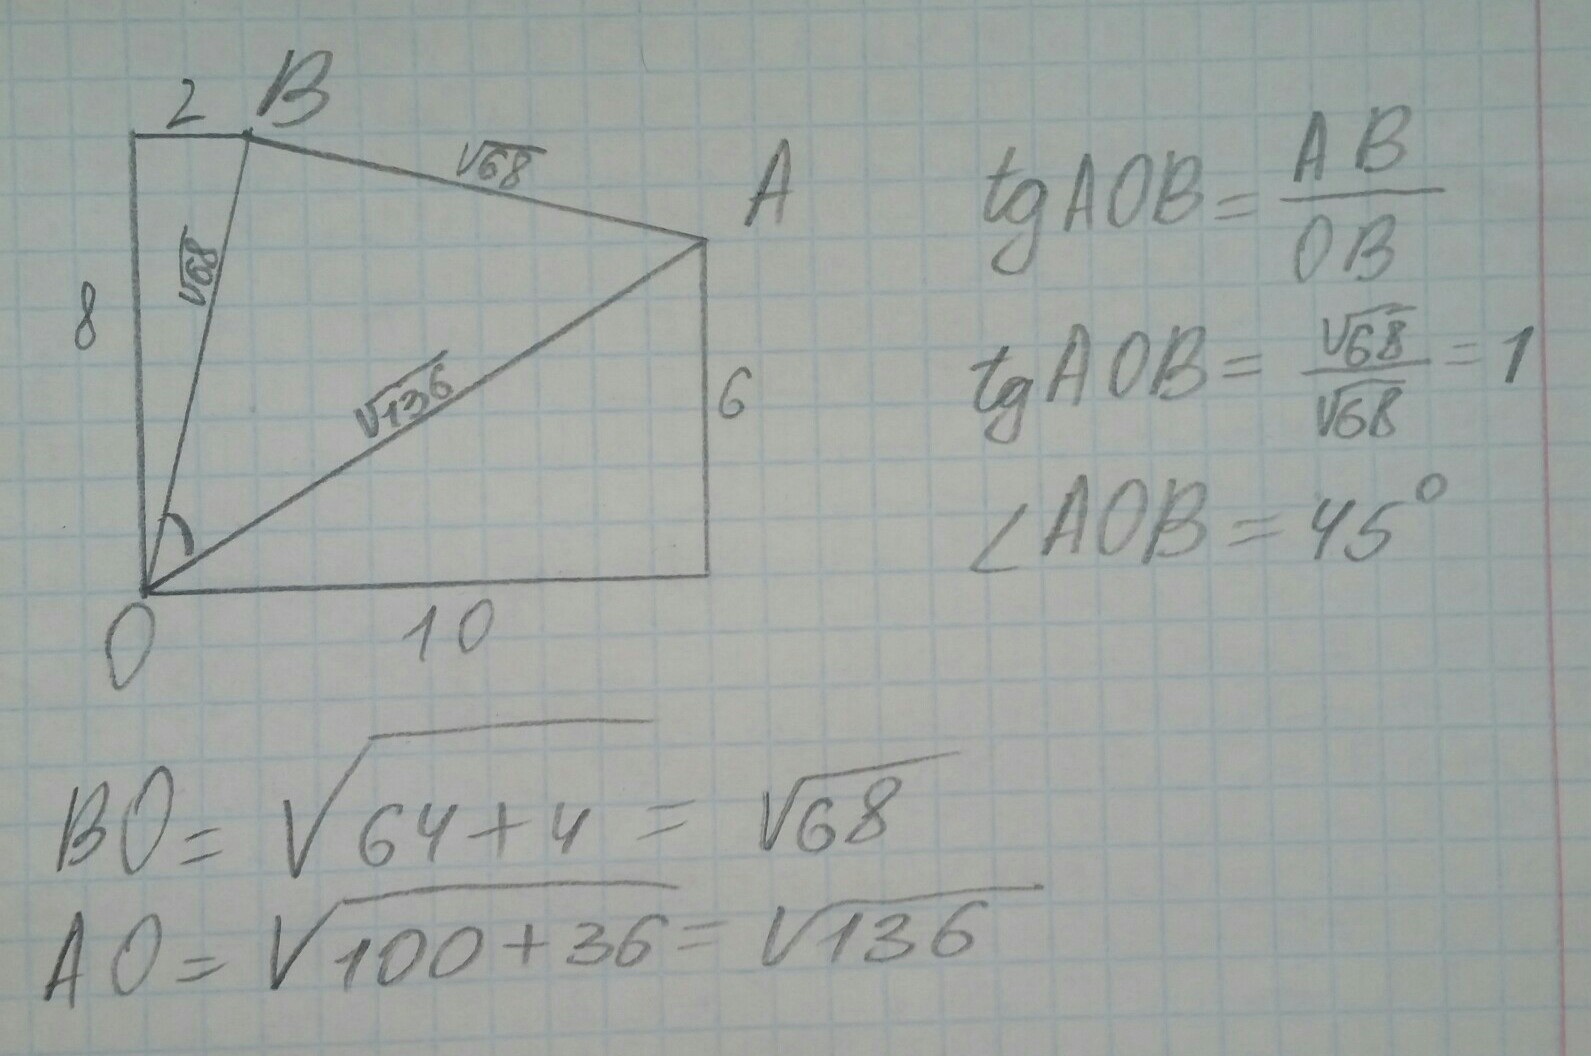 2 B
√68
A
8
√68
√136
6
O
10
tg AOB = AB/OB
tg AOB = √68/√68 = 1
∠AOB = 45°
BO = √64+4 = √68
AO = √100+36 = √136